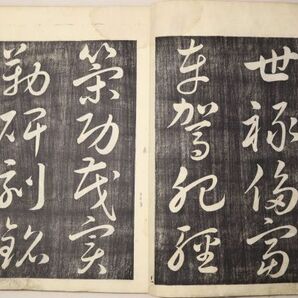 世祿侈富
車駕肥輕
策功茂實
勒碑刻銘